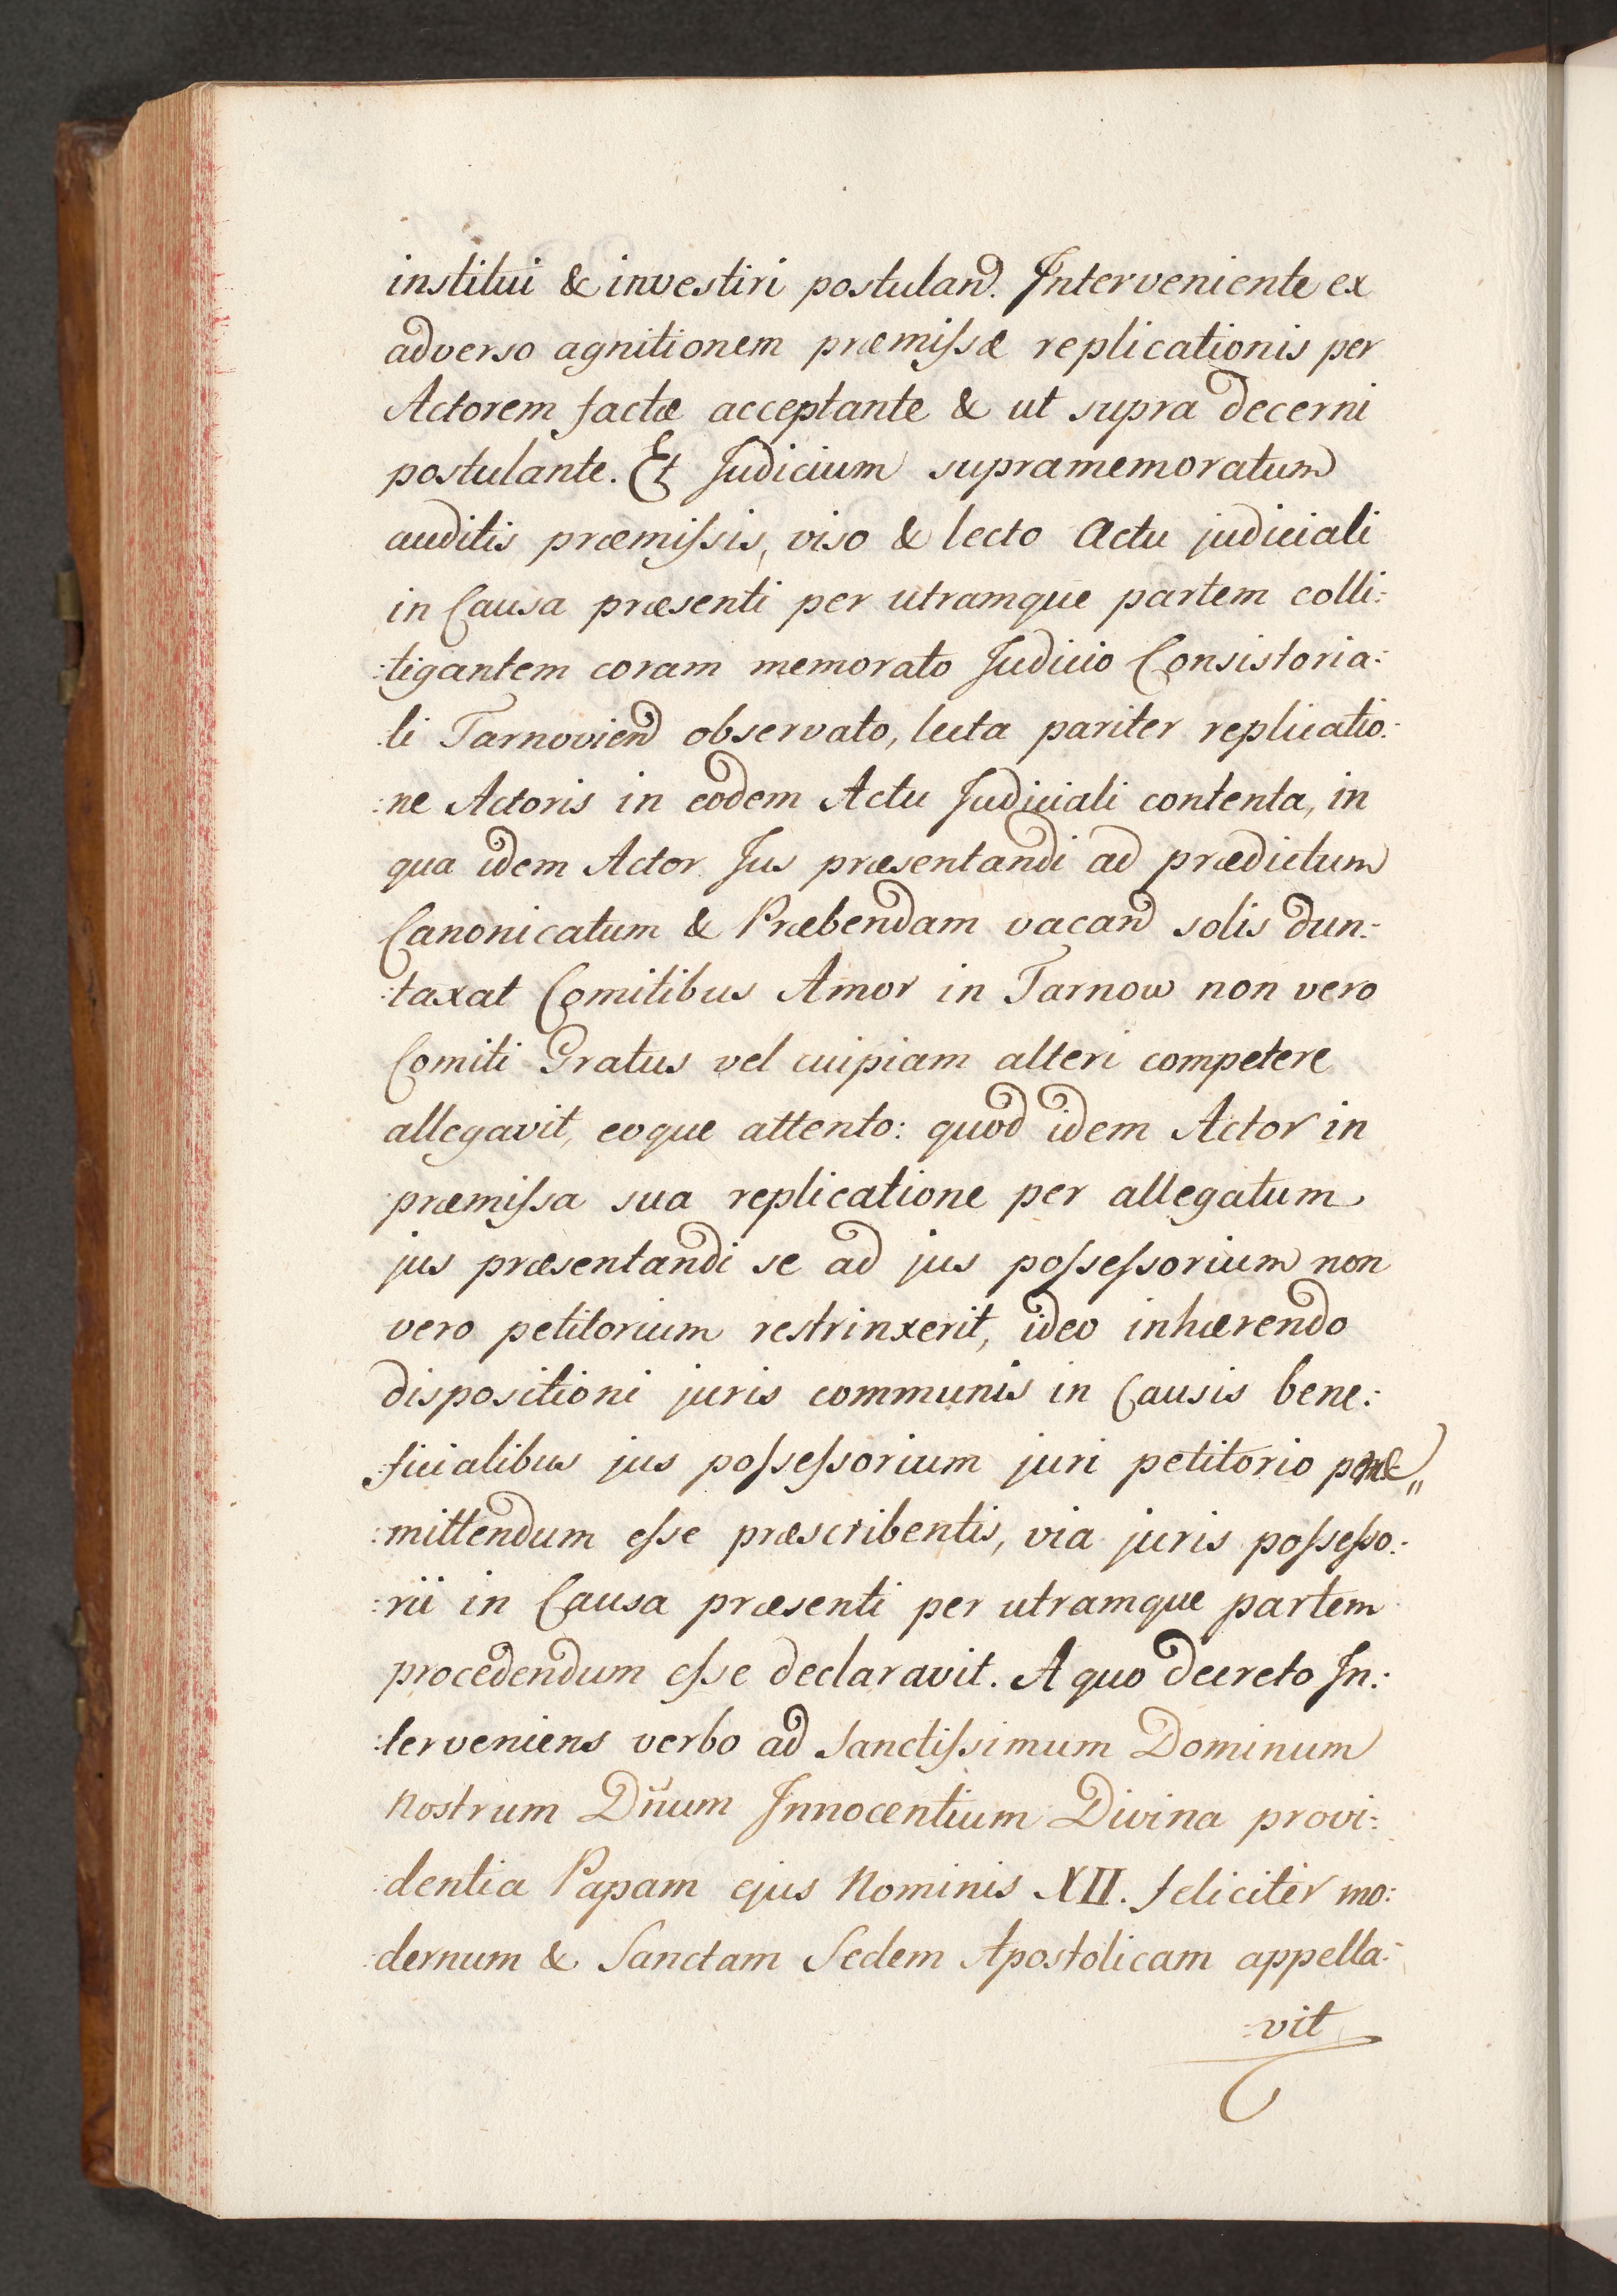 institui & investiri postuland. Interveniente ex
adverso agnitionem præmissæ replicationis per
Actorem factæ acceptante & ut supra decerni
postulante. Et Judicium supramemoratum
auditis præmissis, viso & lecto Actu judiciali
in Causa præsenti per utramque partem colli:
:tigantem coram memorato Judicio Consistoria:
:li Tarnoviend observato, lecta pariter replicatio:
:ne Actoris in eodem Actu Judiciali contenta, in
qua idem Actor Jus præsentandi ad prædictum
Canonicatum & Præbendam vacand solis dun:
:taxat Comitibus Amor in Tarnow non vero
Comiti Gratus vel cuipiam alteri competere
allegavit, eoque attento: quod idem Actor in
præmissa sua replicatione per allegatum
jus præsentandi se ad jus possessorium non
vero petitorium restrinxerit, ideo inhærendo
dispositioni juris communis in Causis bene:
:ficialibus jus possessorium juri petitorio præ„
:mittendum esse præscribentis, via juris possesso:
:rii in Causa præsenti per utramque partem
procedendum esse declaravit. A quo decreto In:
:terveniens verbo ad Sanctissimum Dominum
Nostrum Dn̄um Innocentium Divina provi:
:dentia Papam ejus Nominis XII. feliciter mo:
:dernum & Sanctam Sedem Apostolicam appella:
:vit